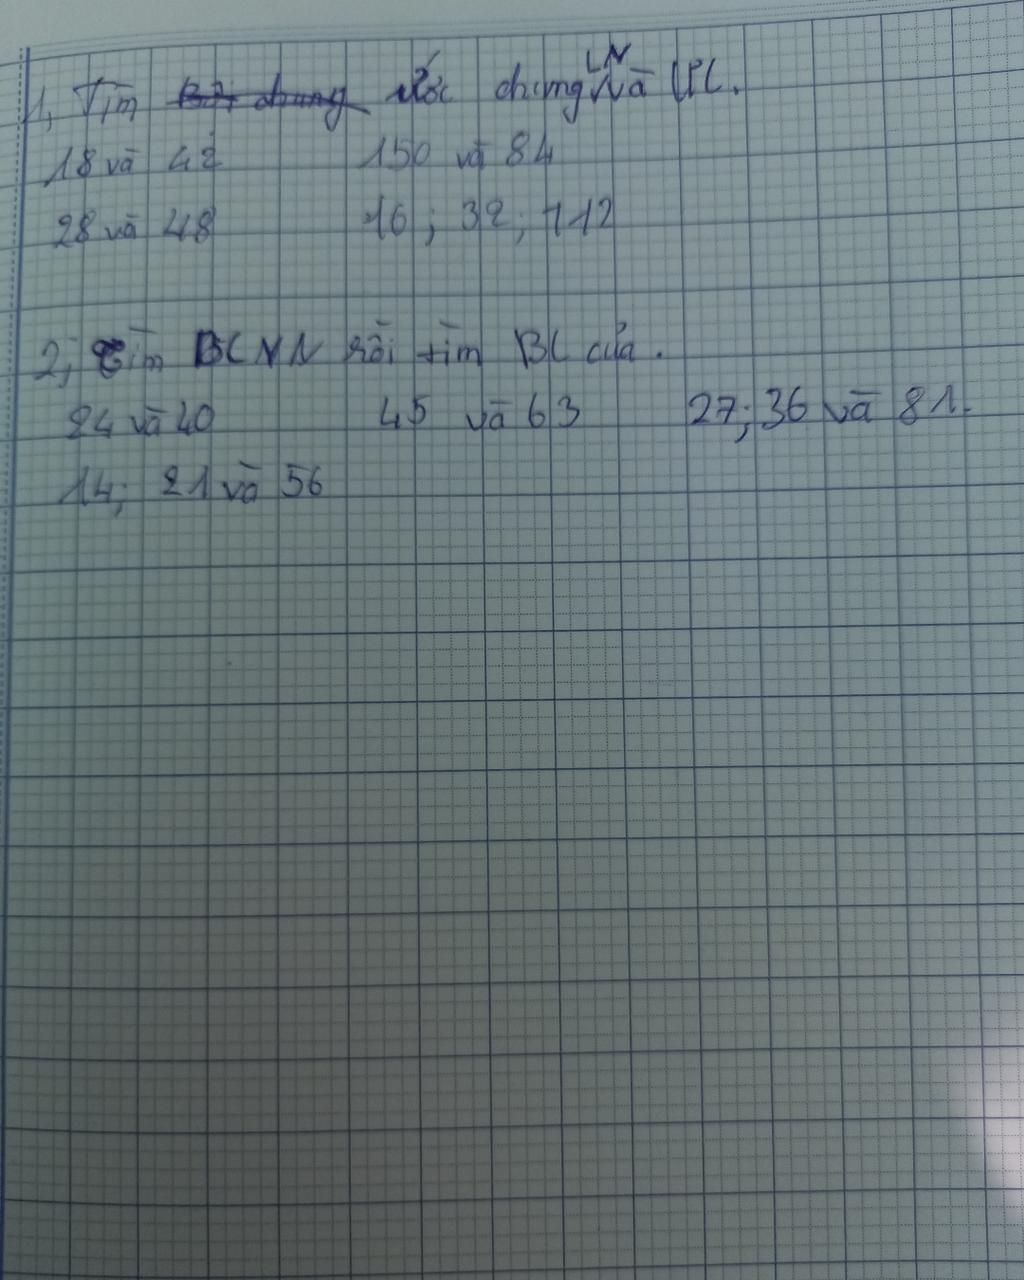 1, Tìm ước chung LN và ƯC.
18 và 42 150 và 84
28 và 48 16 ; 32 ; 112
2, Tìm BCNN rồi tìm BC của.
24 và 40 45 và 63 27; 36 và 81.
14; 21 và 56